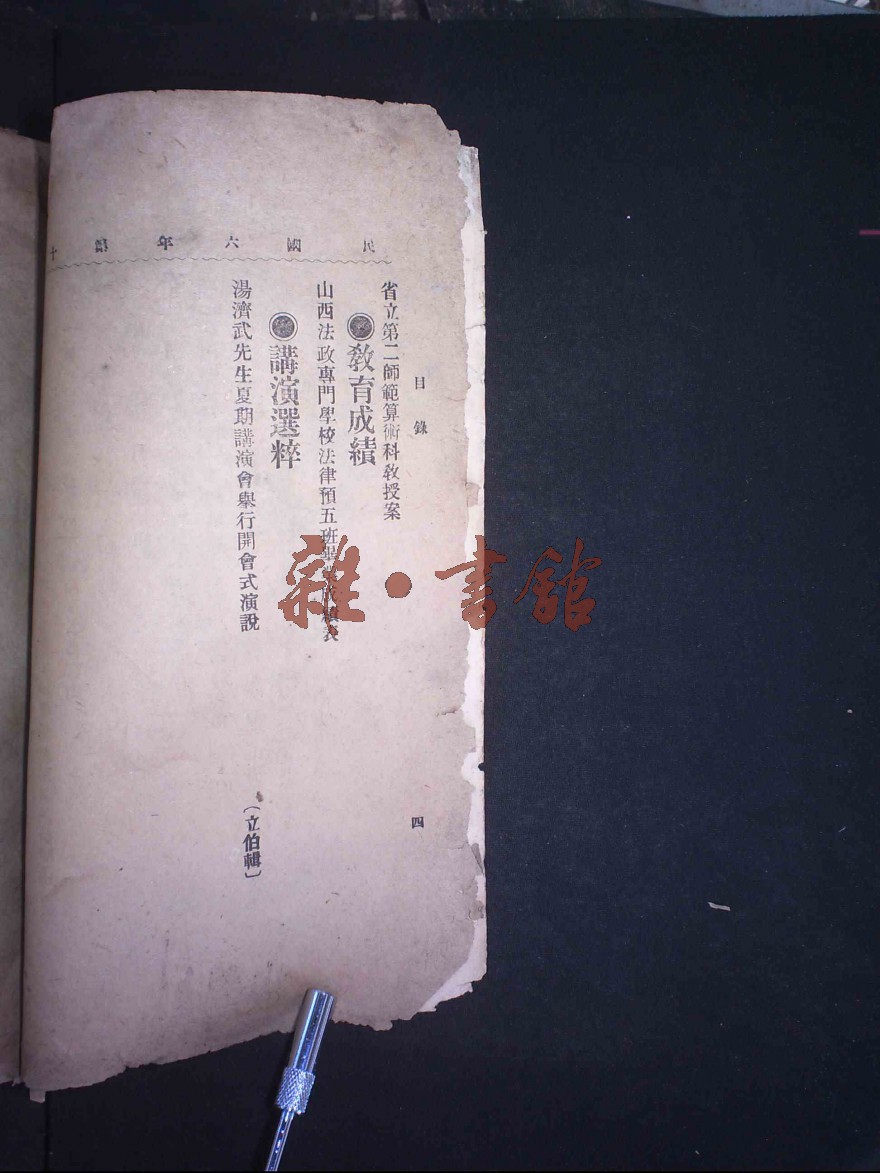 民國六年第十
目錄
四
省立第二師範算術科敎授案
敎育成績
山西法政專門學校法律預五班畢業成績表
講演選粹
湯濟武先生夏期講演會舉行開會式演說
(立伯輯)
雜·書館